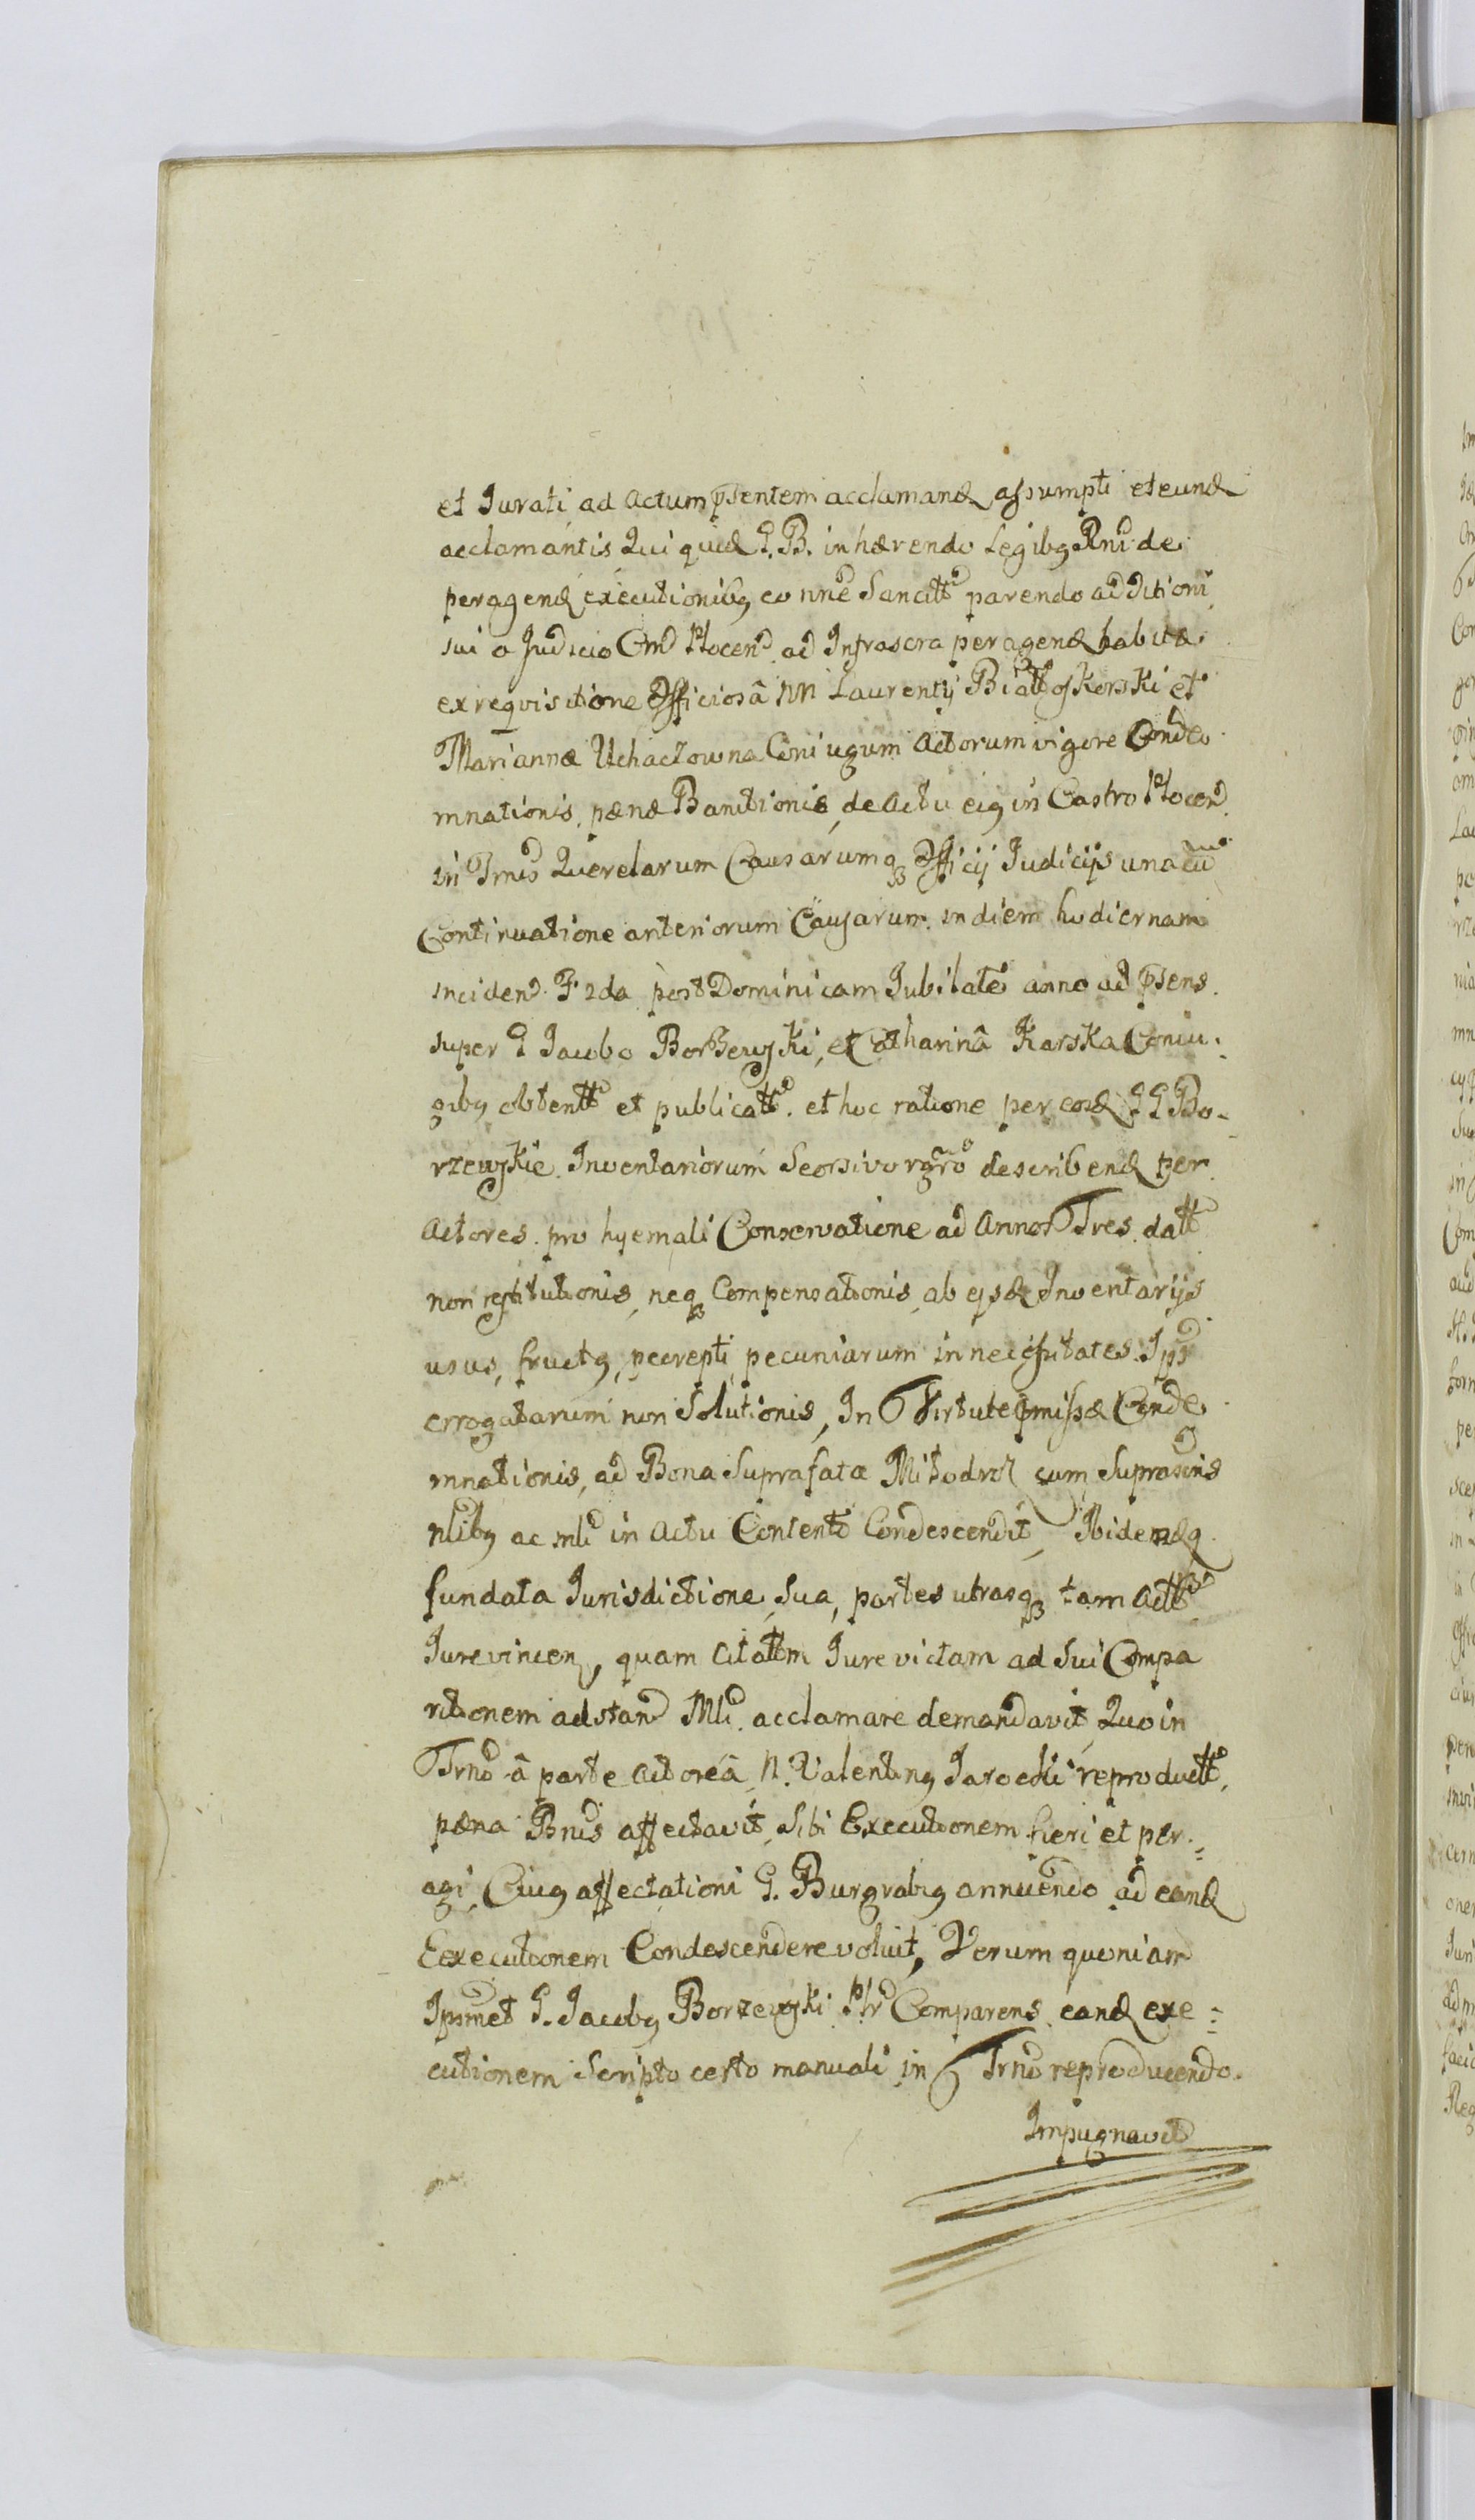 et Jurati ad Actum pſentem acclamand aſsumpti et eund
acclamantis Qui quid G. B. inhærendo Legibg Rni de
peragend executionibg eo nne Sancitt parendo additioni
sui a Judicio Cnd Plocen ad Infrascra peragend habitæ
ex reqvisitione Officiosâ NN Laurentij Białoskorski et
Mariannæ Uchaczowna Coniugum Actorum vigore Conde
mnationis, pænæ Banitionis, de Actu eig in Castro Plocen
in Trnis Querelarum Causarumq Officij Judicijs una cũ
Continuatione anteriorum Causarum in diem hodiernam
inciden F 2da post Dominicam Jubilate anno ad pſens
super G Jacobo Borzewski, et Catharinâ Karska Coniu:
gibg obtentt et publicatt. et hoc ratione per eosd GG Bo-
rzewskie Inventariorum Seorsivo rgro describend per
Actores pro hyemali Conservatione ad Annos Tres datt
non restitutionis, neq Compensationis, ab ejsd Inventarijs
usus, fructg, percepti, pecuniarum in neceſsitates Ips
errogatarum non Solutionis, In Virtute pmiſsæ Conde
mnationis, ad Bona Suprafata Mitodroz cum Suprascris
nlibg ac mli in Actu Content Condescendit, Ibidemq
fundata Jurisdictione Sua, partes utrasq tam Act
Jurevincen, quam Citatm Jure victam ad Sui Compa
ritionem adstan Mli acclamare demandavit, Quo in
Trno â parte Actoreâ N. Valenting Jarocki reproductt,
pæna Bnis affectavit, Sibi Executionem fieri et per:
agi, Ciug affectationi G. Burgrabig annuendo ad eand
Executionem Condescendere voluit, Verum quoniam
Ipsmet G. Jacobg Borzewski Plr Comparens eand exe:
cutionem Scripto certo manuali in Trno reproducendo.
Impugnavit